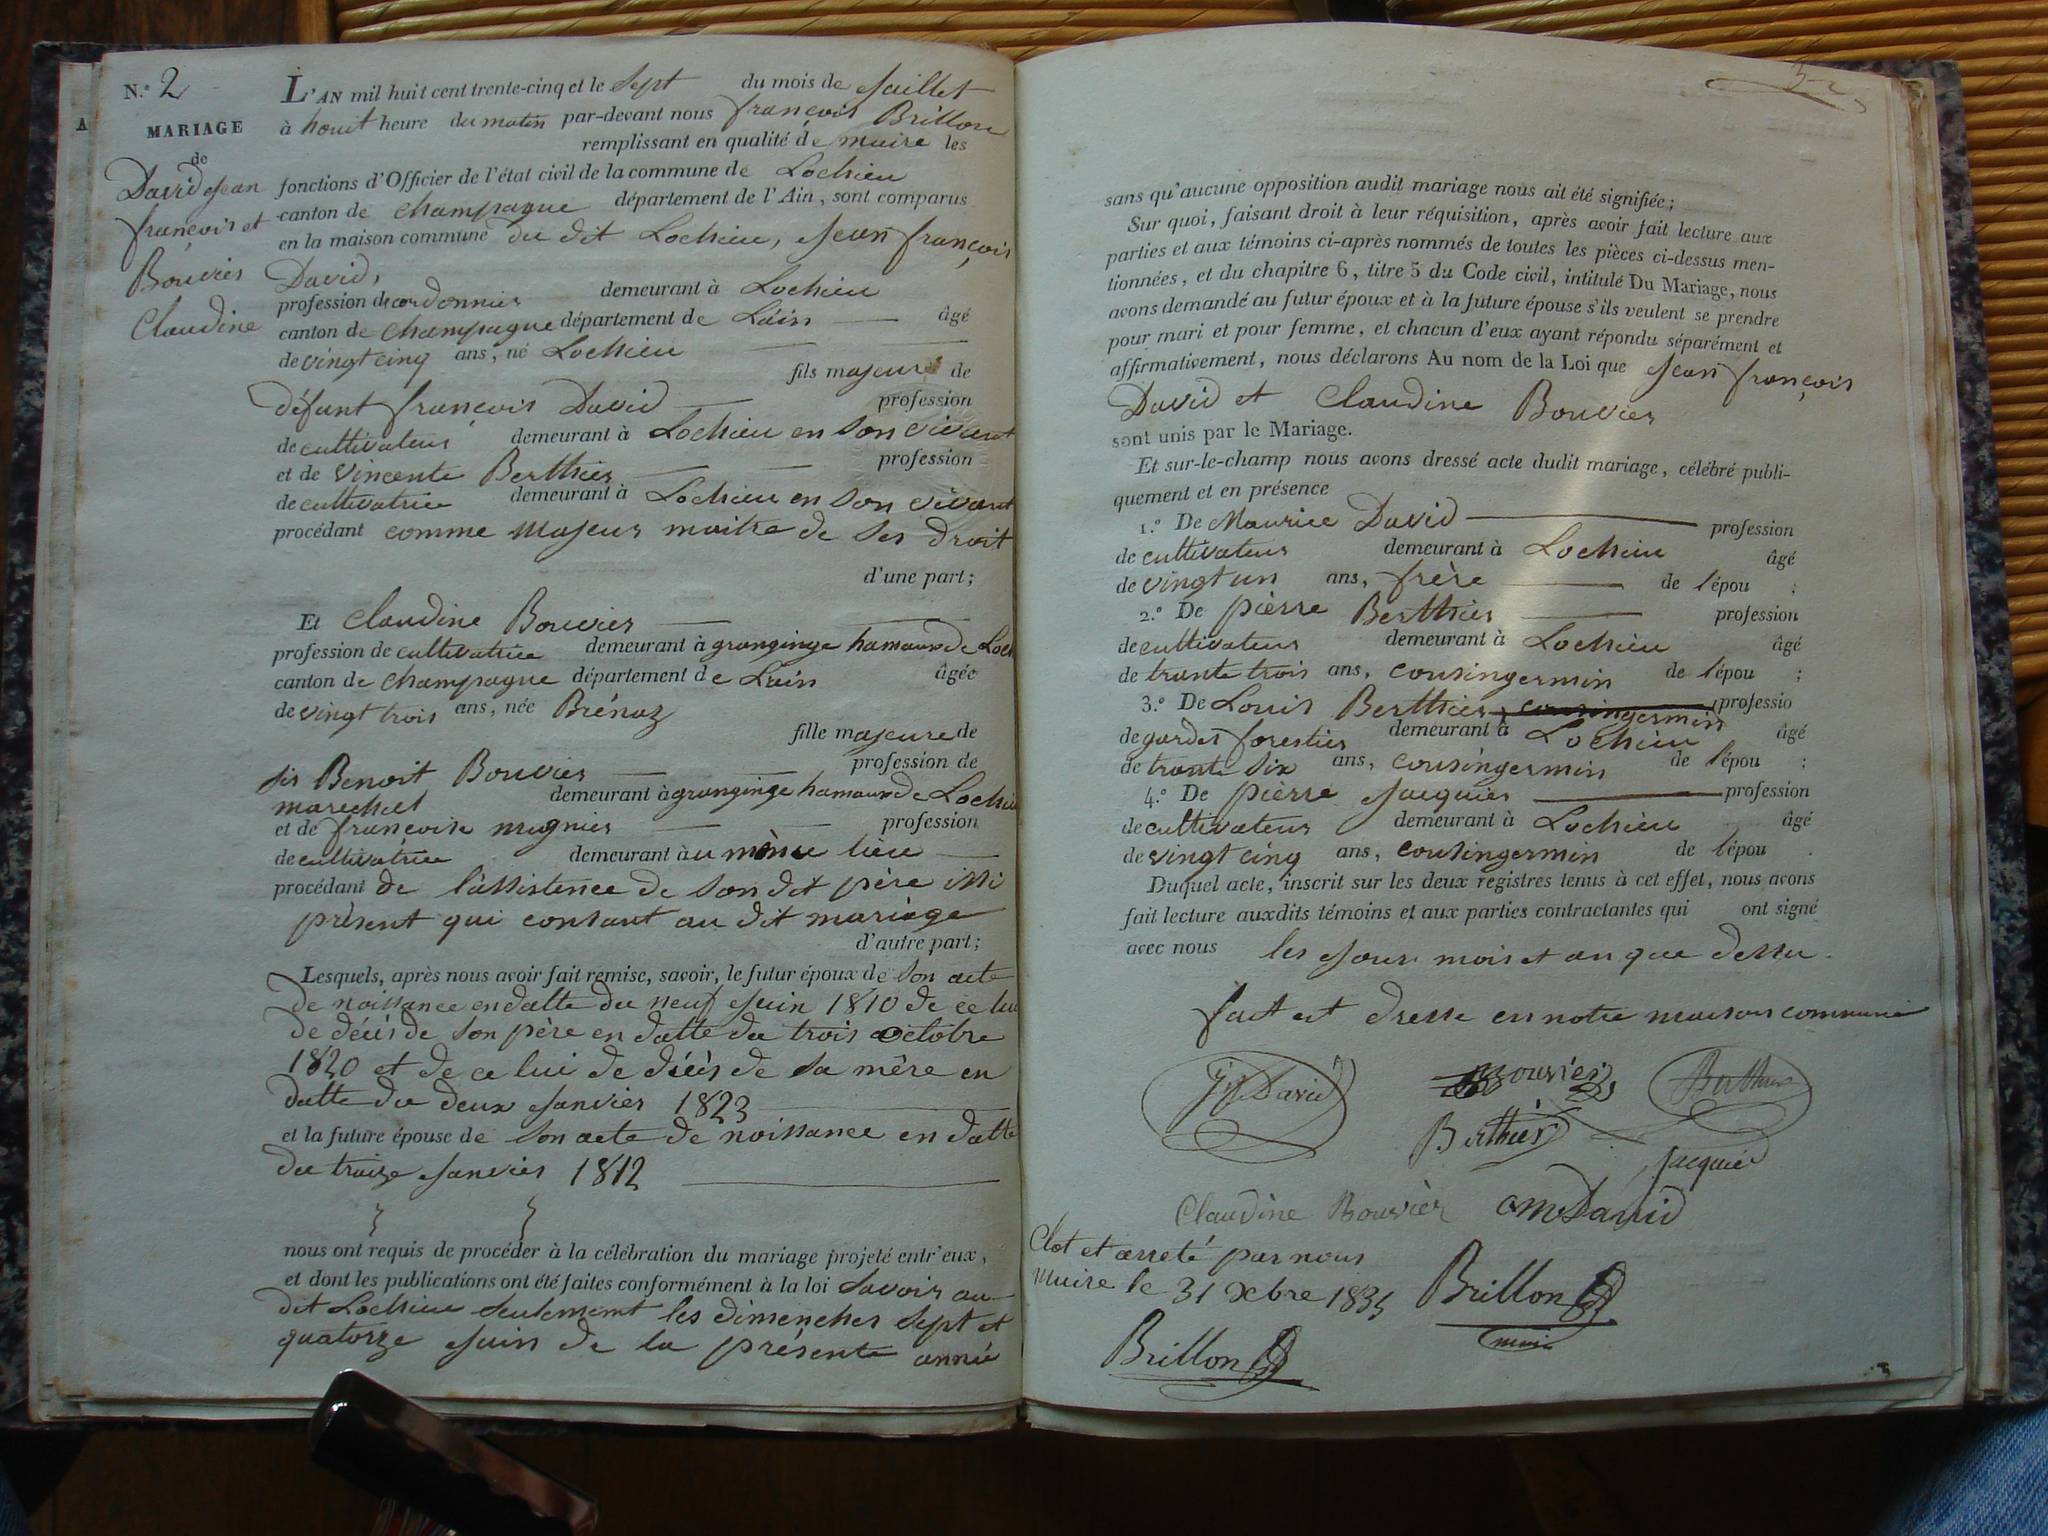 N.º 2
MARIAGE
de
David Jean
françois et
Bouvier
Claudine
L'AN mil huit cent trente-cinq et le Sept du mois de Juillet
à houit heure du matin par-devant nous françois Brillon
remplissant en qualité de maire les
fonctions d'Officier de l'état civil de la commune de Lochieu
canton de champagne département de l'Ain, sont comparus
en la maison commune du dit Lochieu, Jean françois
David,
profession de cordonnier demeurant à Lochieu
canton de champagne département de Lain âgé
de vingt cinq ans, né Lochieu
fils majeur de
défunt françois David profession
de cultivateur demeurant à Lochieu en son vivant
et de vincente Berthier profession
de cultivatrice demeurant à Lochieu en son vivant
procédant comme majeur maitre de ses droit
d'une part;
Et claudine Bouvier
profession de cultivatrice demeurant à granginge hamaux de Loch
canton de champagne département de Lain âgée
de vingt trois ans, née Brénaz
fille majeure de
sir Benoit Bouvier profession de
marechel demeurant à granginge hamaux de Lochieu
et de françoise mugnier profession
de cultivatrice demeurant àu mème lieu
procédant de l'assistence de son dit père issi
présent qui consant au dit mariage
d'autre part;
Lesquels, après nous avoir fait remise, savoir, le futur époux de son acte
de naissance en datte du neuf Juin 1810 de ce lui
de décès de son père en datte du trois octobre
1820 et de ce lui de décès de sa mère en
datte du deux Janvier 1823
et la future épouse de son acte de naissance en datte
du traize Janvier 1812
nous ont requis de procéder à la célébration du mariage projeté entr'eux,
et dont les publications ont été faites conformément à la loi Savoir au
dit Lochieu seulement les dimenches sept et
quatorze Juin de la présente année
sans qu'aucune opposition audit mariage nous ait été signifiée;
Sur quoi, faisant droit à leur réquisition, après avoir fait lecture aux
parties et aux témoins ci-après nommés de toutes les pièces ci-dessus men-
tionnées, et du chapitre 6, titre 5 du Code civil, intitulé Du Mariage, nous
avons demandé au futur époux et à la future épouse s'ils veulent se prendre
pour mari et pour femme, et chacun d'eux ayant répondu séparément et
affirmativement, nous déclarons Au nom de la Loi que Jean françois
David et Claudine Bouvier
sont unis par le Mariage.
Et sur-le-champ nous avons dressé acte dudit mariage, célébré publi-
quement et en présence
1.º De Maurice David profession
de cultivateur demeurant à Lochieu âgé
de vingt un ans, frère de l'épou ;
2.º De pièrre Berthier profession
de cultivateur demeurant à Lochieu âgé
de trante trois ans, cousingermin de l'épou ;
3.º De Louis Berthier, cousingermin professio
de gardes forestier demeurant à Lochieu âgé
de trante six ans, cousingermin de l'épou ;
4.º De pièrre Jacquier profession
de cultivateur demeurant à Lochieu âgé
de vingt cinq ans, cousingermin de l'épou .
Duquel acte, inscrit sur les deux registres tenus à cet effet, nous avons
fait lecture auxdits témoins et aux parties contractantes qui ont signé
avec nous les Jour mois et an que dessu.
fait et dresse en notre maison commune
Jf David Bouvier Berthier
Berthier Jacquier
Claudine Bouvièr David
Clot et arreté par nous
Maire le 31 xbre 1835 Brillon
maire
Brillon